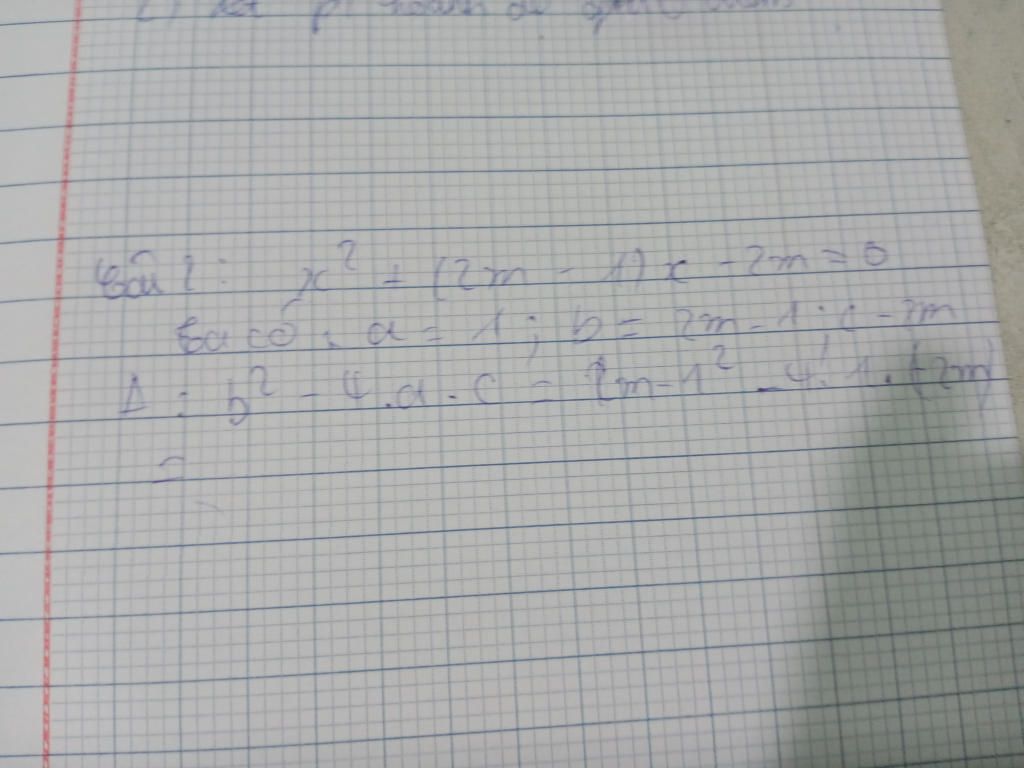 Bài 2: x² + (2m - 1)x - 2m = 0
Ta có: a = 1; b = 2m - 1; c - 2m
Δ: b² - 4.a.c = 2m-1² - 4.1.(-2m)
=